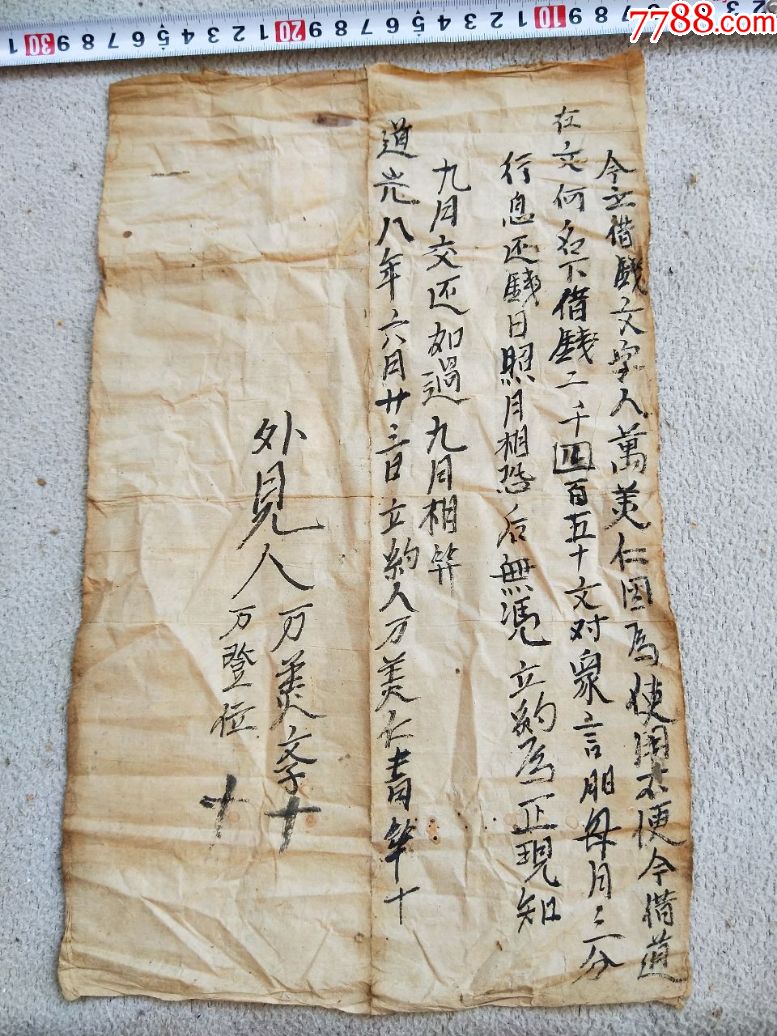 7788.com
今立借錢文字人萬美仁因爲使用不便今借道
在文何名下借錢二千四百五十文对衆言明每月二分
行息还錢日照月相恐后無凴立約爲正現知
九月交还如過九月相筭
道光八年六月廿三日立約人万美仁書筆十
外見人万美文孝十
万登位十